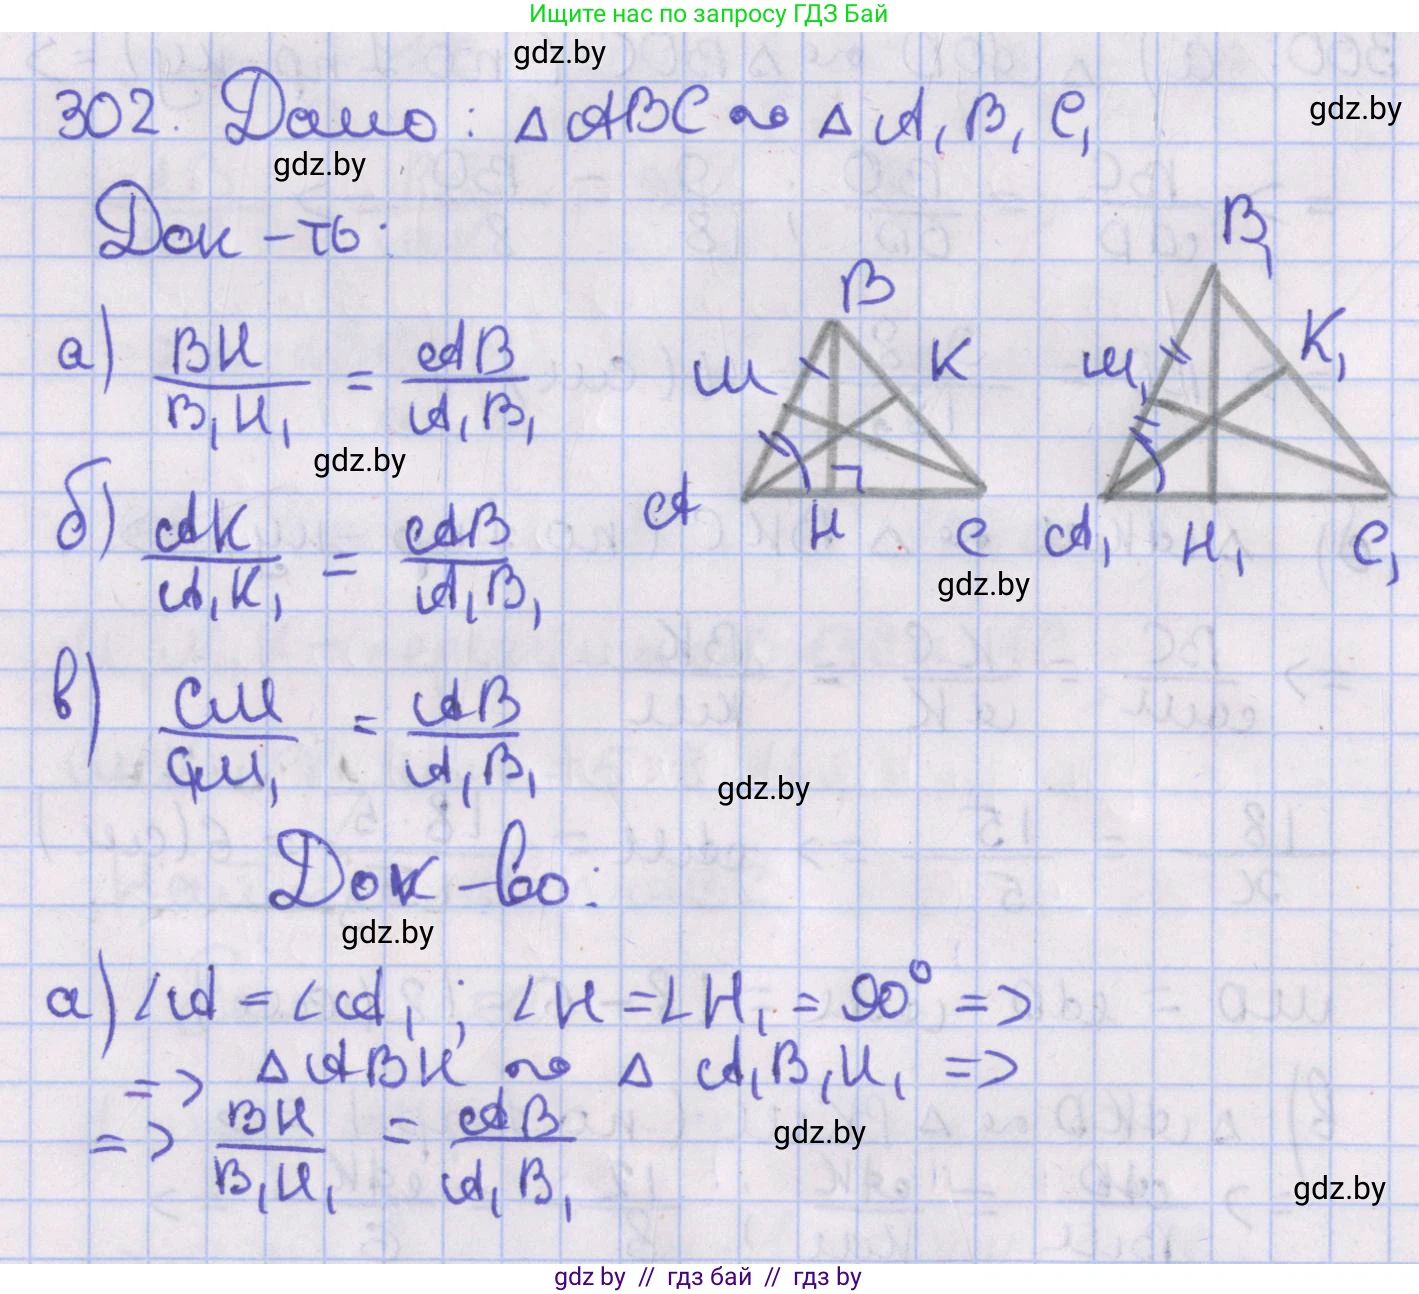 Ищите нас по запросу ГДЗ Бай
gdz.by
302. Дано: △ABC ∾ △A₁B₁C₁
gdz.by
gdz.by
Док-ть:
B
B₁
а) BH/B₁H₁ = AB/A₁B₁
M
K
M₁
K₁
gdz.by
б) AK/A₁K₁ = AB/A₁B₁
A
H
C
A₁
H₁
C₁
gdz.by
в) CM/C₁M₁ = AB/A₁B₁
gdz.by
Док-во:
gdz.by
а) ∠A = ∠A₁; ∠H = ∠H₁ = 90° =>
=> △ABH ∾ △A₁B₁H₁ =>
=> BH/B₁H₁ = AB/A₁B₁
gdz.by
gdz.by
gdz by // гдз бай // гдз by